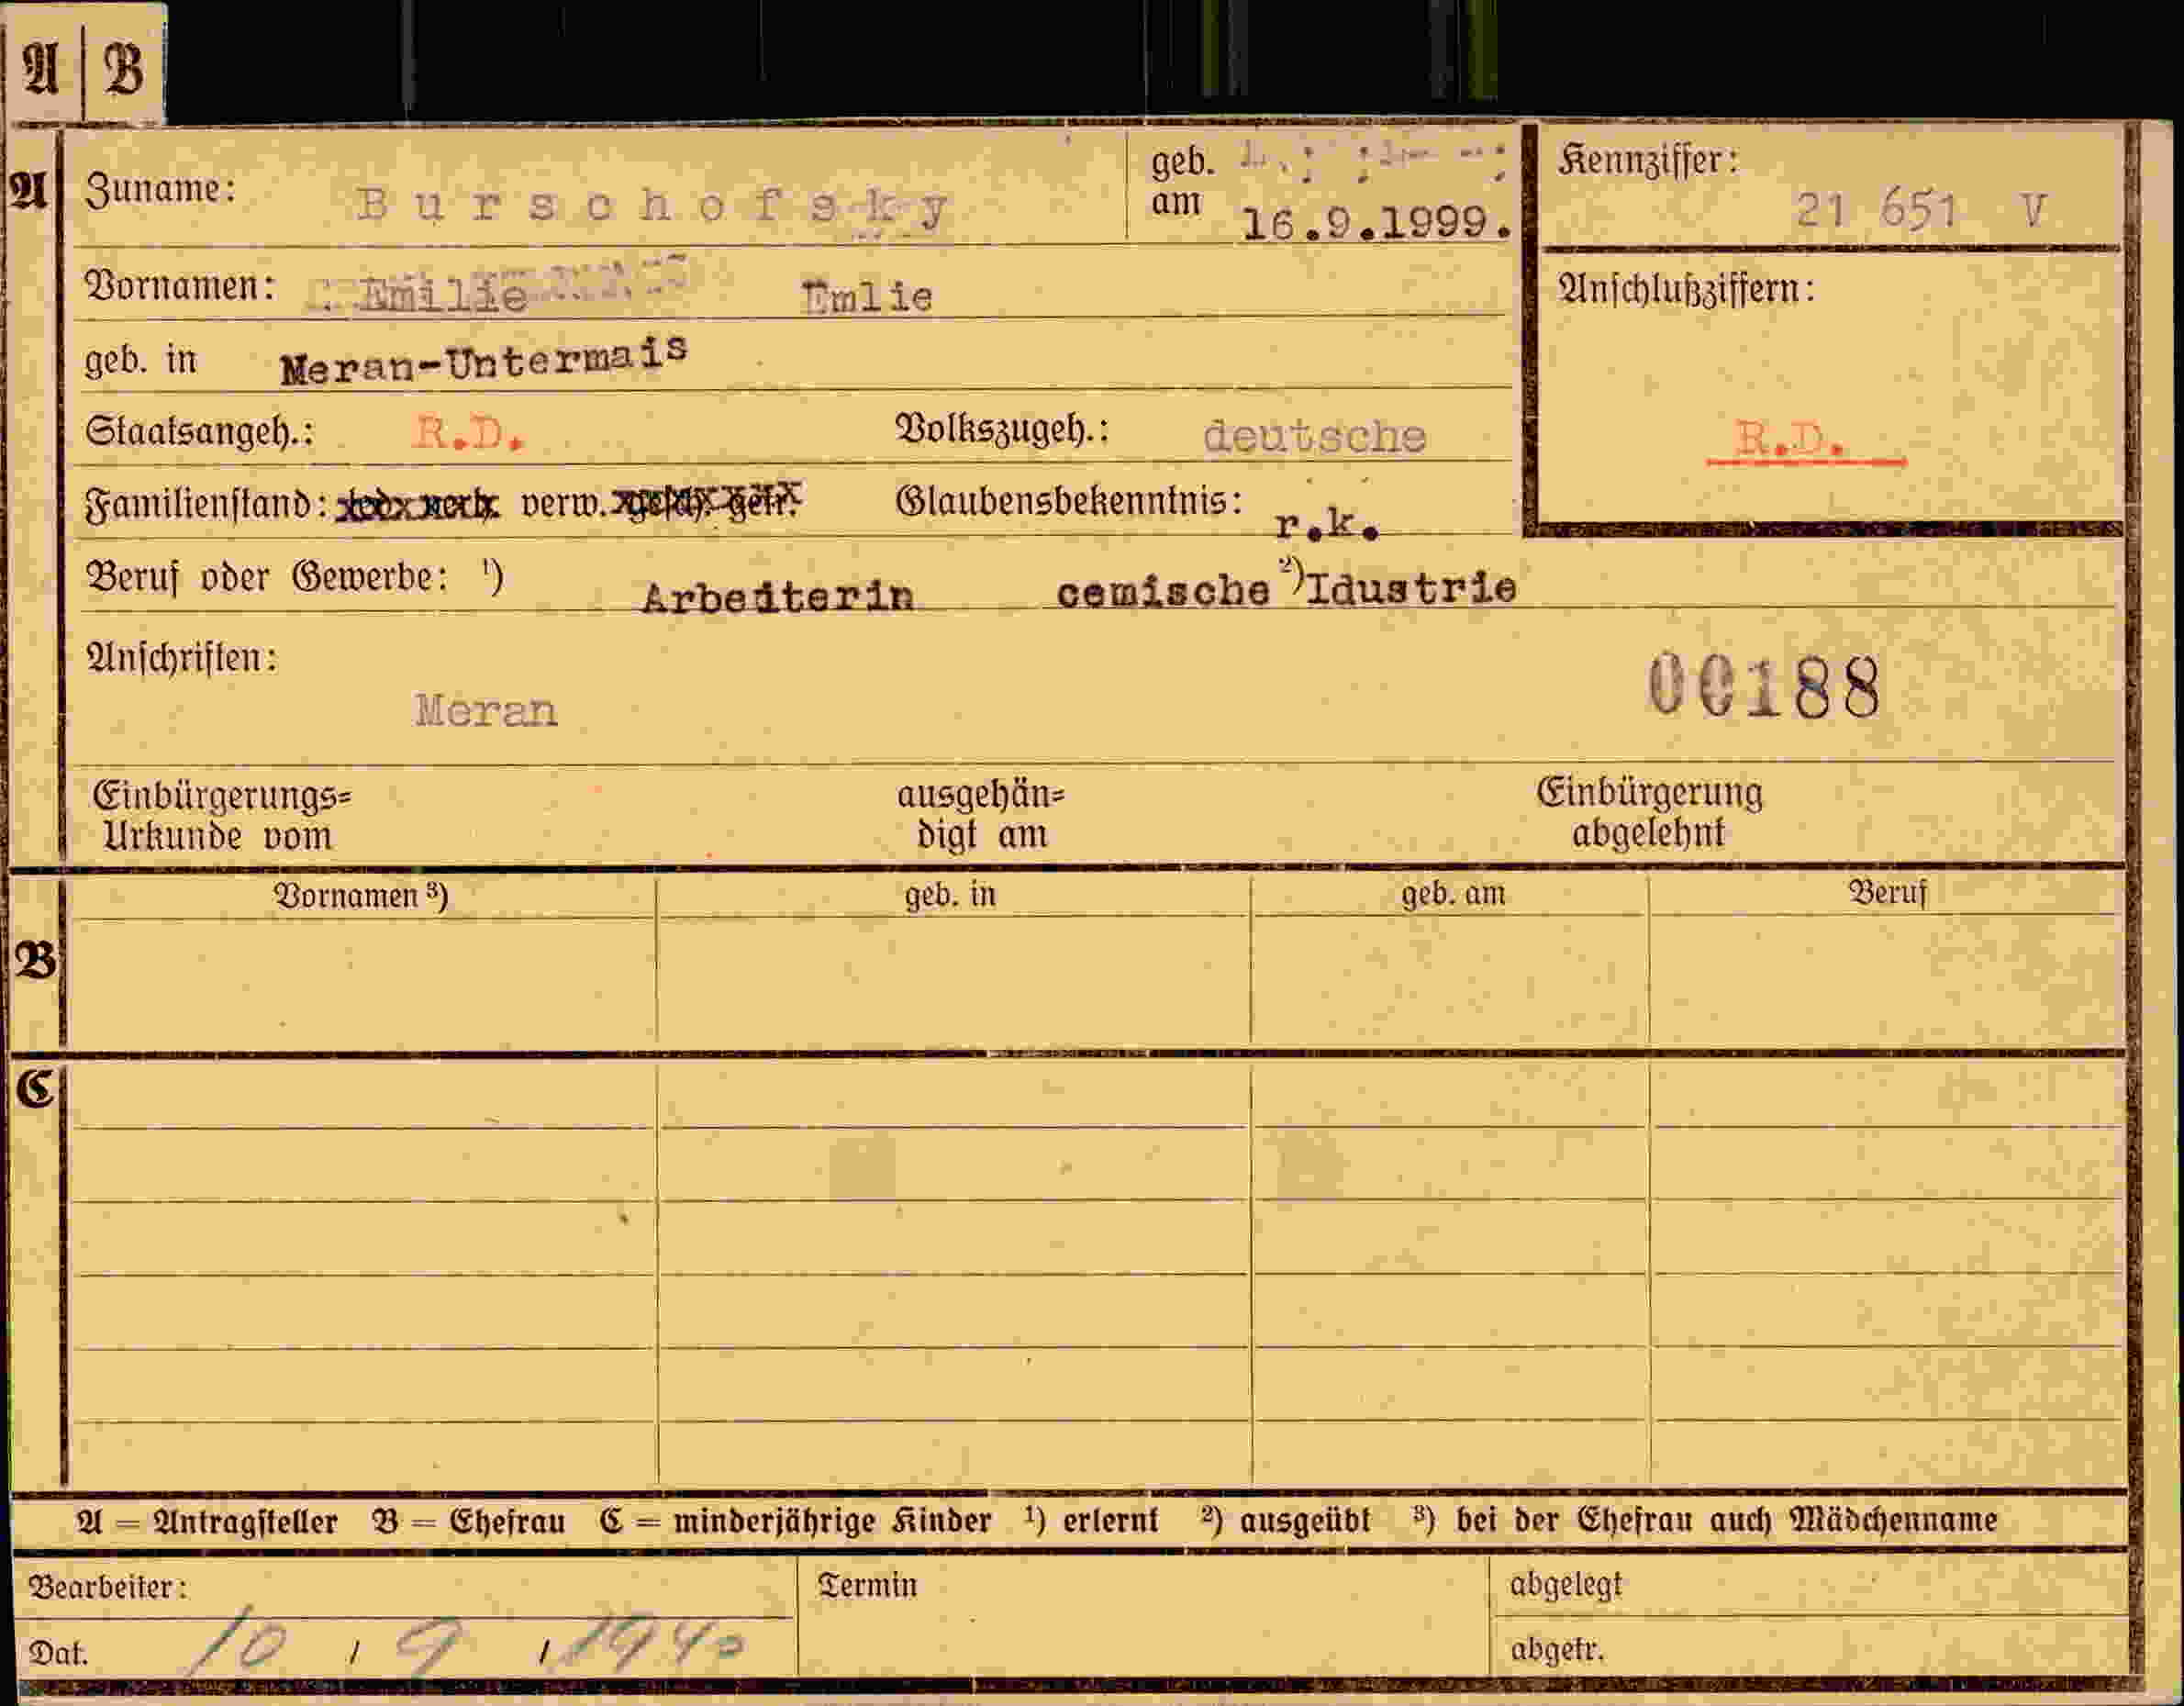 A | B
A
Zuname: Burschofsky
geb. am 16.9.1999.
Kennziffer: 21 651 V
Vornamen: Emilie Emlie
Anschlußziffern:
geb. in Meran-Untermais
Staatsangeh.: R.D. Volkszugeh.: deutsche
R.D.
Familienstand: led. verh. verw. gesch. getr. Glaubensbekenntnis: r.k.
Beruf oder Gewerbe: ¹) Arbeiterin cemische ²) Idustrie
Anschriften:
00188
Meran
Einbürgerungs=
Urkunde vom
ausgehän=
digt am
Einbürgerung
abgelehnt
Vornamen ³) geb. in geb. am Beruf
B
C
A = Antragsteller B = Ehefrau C = minderjährige Kinder ¹) erlernt ²) ausgeübt ³) bei der Ehefrau auch Mädchenname
Bearbeiter: Termin abgelegt
Dat. 10 / 9 / 1940 abgetr.